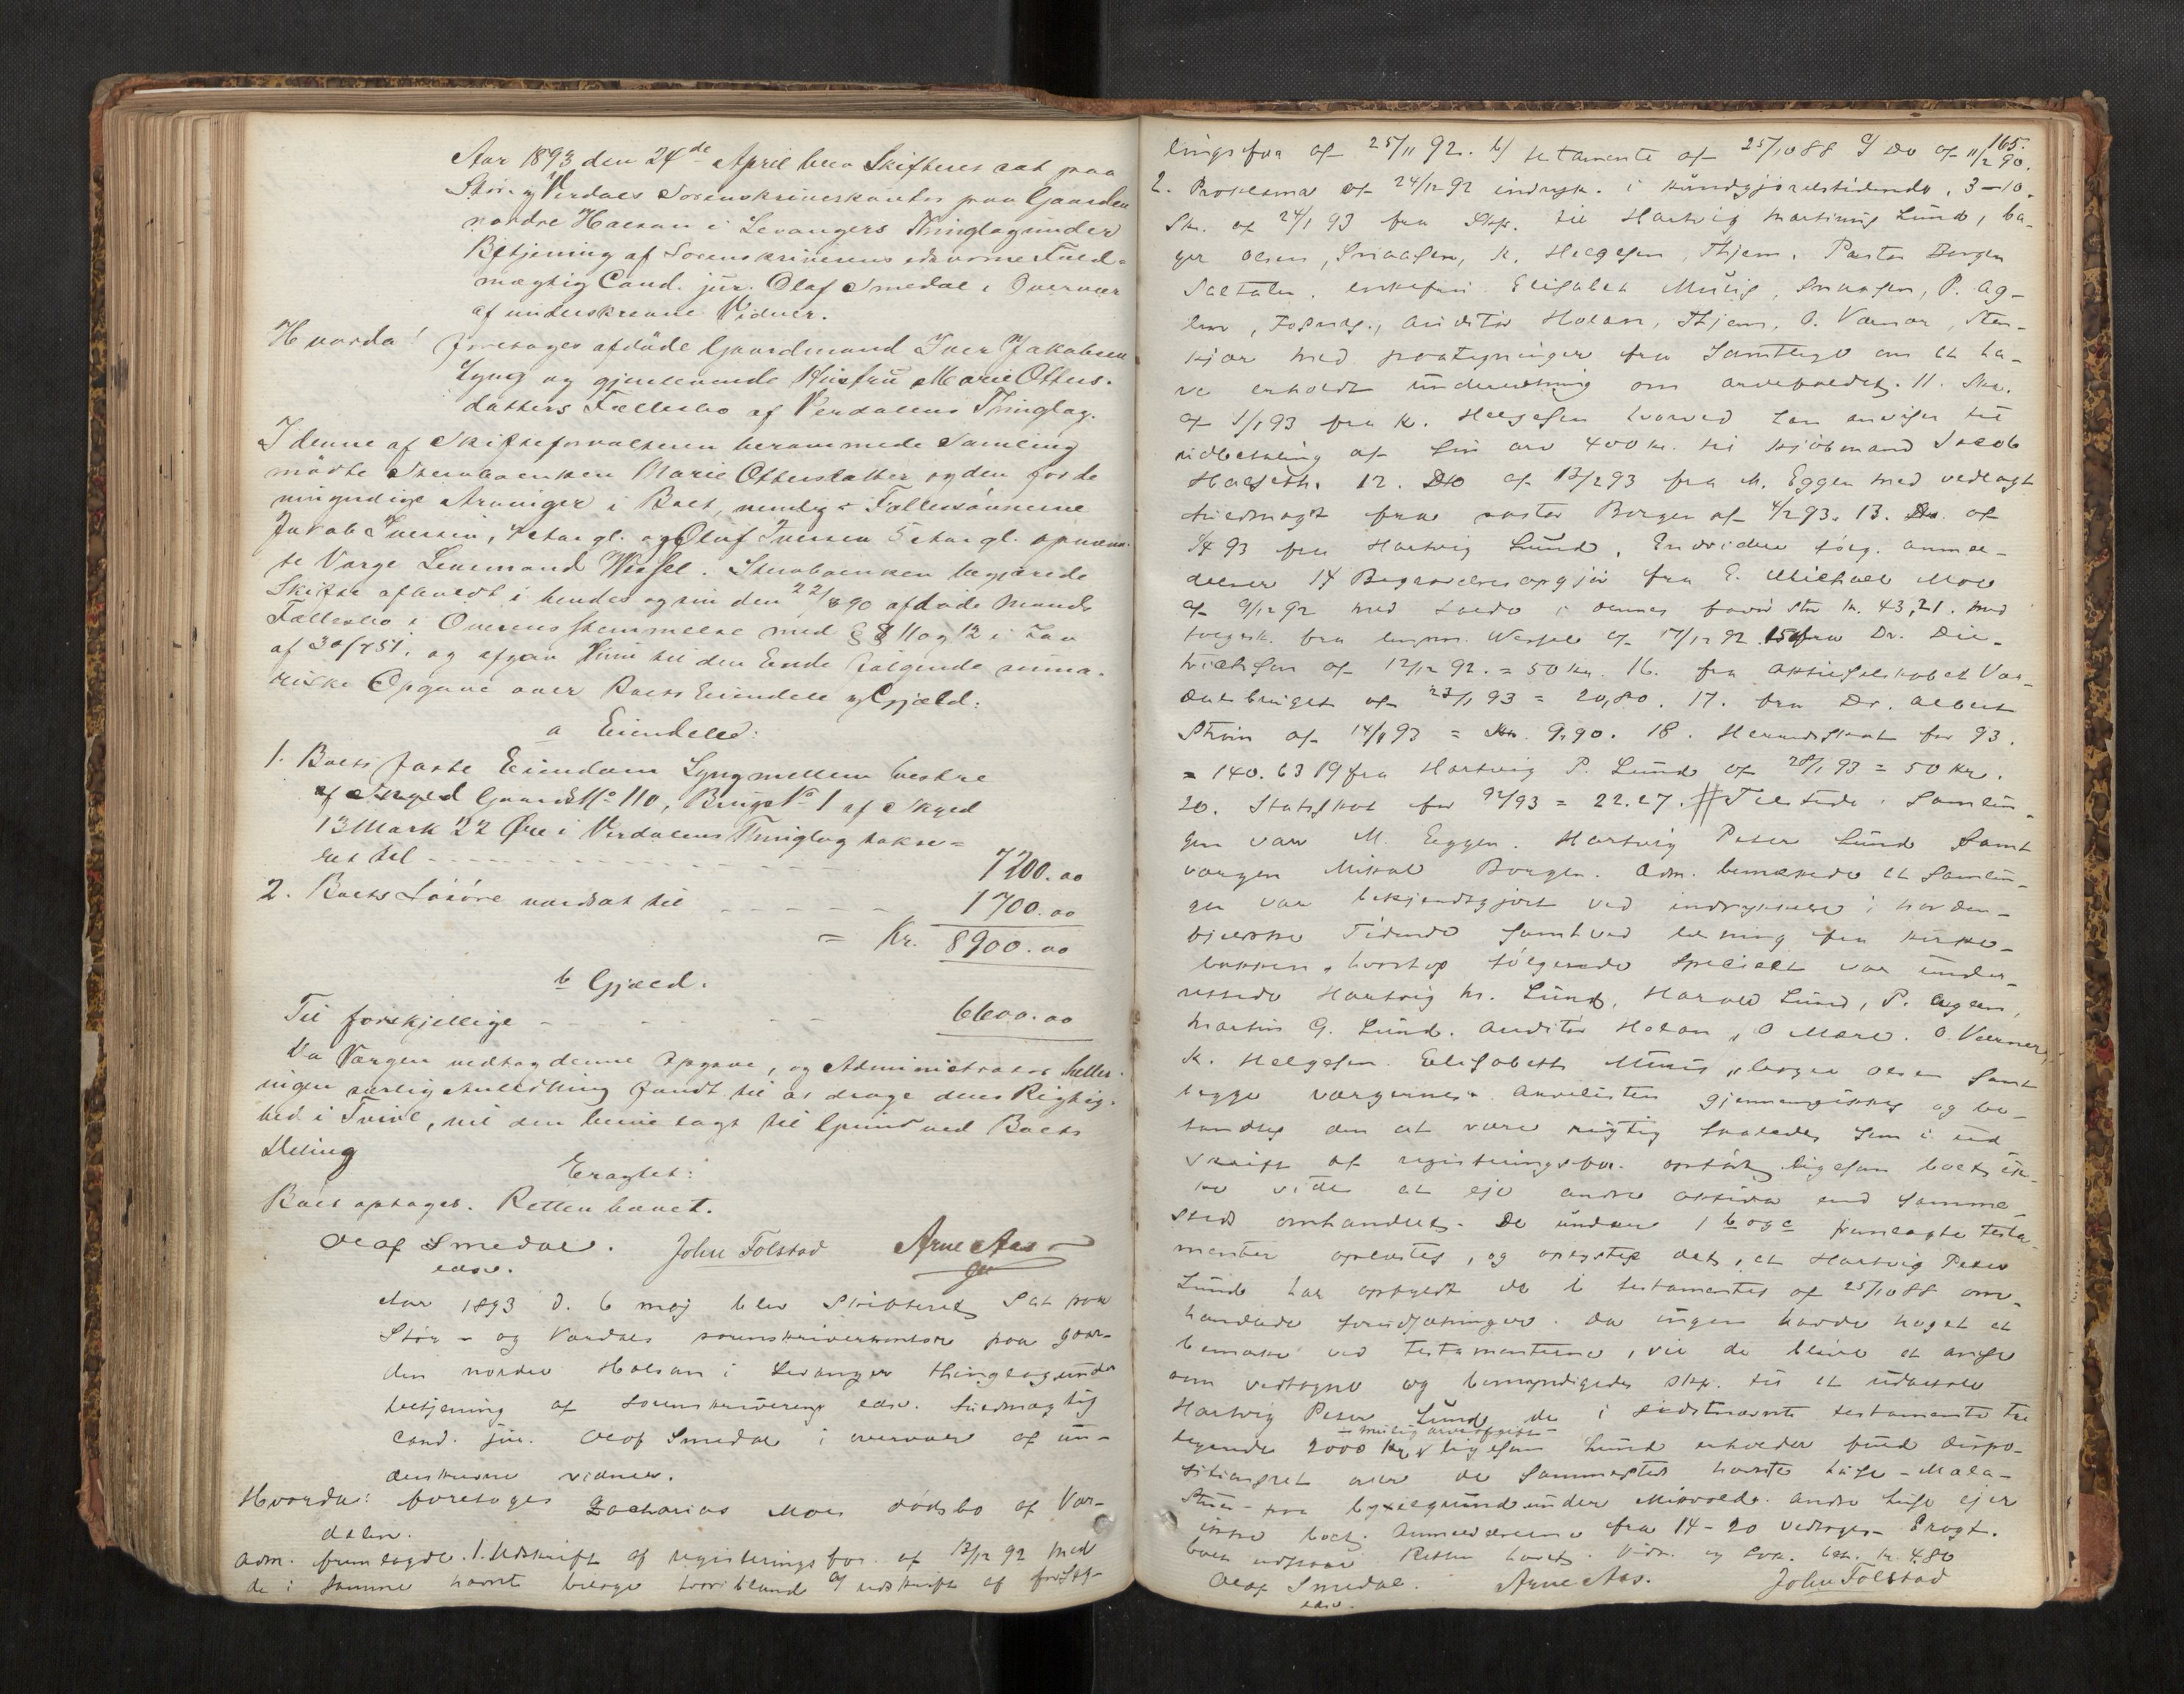 Aar 1893 den 24de April blev Skifteret sat paa
Stør- og Værdals Sorenskriverkontor paa Gaarden
nordre Halsan i Levangers Thinglag under
Betjening af Sorenskriverens edsvorne Fuld-
mægtig Cand. jur. Olaf Smedal i Overvær
af underskrevne Vidner.
Hvorda! foretages afdøde Gaardmand Iver Jakobsen
Lyng og gjenlevende Hustru Marie Otters-
datters Fællesbo af Værdalens Thinglag.
I denne af Skifteforvalteren berammede Samling
mødte Stervboenken Marie Ottersdatter og den for de
umyndige Arvinger i Boet, nemlig: Fællessønnerne
Jakob Iversen, Aar gl. og Oluf Iversen 5 Aar gl. opnævn-
te Værge Lensmand Wessel. Stervboenken begjærede
Skifte afholdt i hendes og sin den 22/8 90 afdøde Mands
Fællesbo i Overensstemmelse med §§ 11 og 12 i Lov
af 30/7 51, og afgav hun til den Ende følgende suma-
riske Opgave over Boets Eiendele og Gjæld:
a Eiendele:
1. Boets faste Eiendom Lyng mellem vestre
af Skyld Gaards No 110, Brugs No 1 af Skyld
13 Mark 22 Øre i Værdalens Thinglag takse-
ret til - - - - 7200.00
2. Boets Løsøre værdsat til - - - - 1700.00
= Kr. 8900.00
b Gjæld.
Til forskjellige - - - - 6600.00
Da Værgen vedtog denne Opgave, og Administrator heller
ingen særlig Anledning fandt til at drage dens Rigtig-
hed i Tvivl, vil den blive lagt til Grund ved Boets
Deling
Eragtet:
Boet optages. Retten hævet.
Olaf Smedal. John Tolstad Arne Aas
edsv.
Aar 1893 d. 6 maj blev Skifteret sat paa
Stør- og Værdals sorenskriverkontor paa gaar-
den nordre Halsan i Levanger thinglag under
betjening af Sorenskriverens edsv. fuldmægtig
cand. jur. Olaf Smedal i overvær af un-
derskrevne vidner.
Hvorda: foretoges Zacharias Moes dødsbo af Vær-
dalen.
Adm. fremlagde. 1. Udskrift af registreringsfor. af 13/12 92 med
de i samme nævnte bilage hvoriblandt a/ udskrift af forseg-
165.
lingsfor af 25/11 92. b/ testamente af 25/10 88 c/ Do af 11/2 90.
2. Proklama af 24/12 92 indryk. i kundgjørelsestidende. 3-10.
Sk. af 24/1 93 fra Skf. til Hartvig Martinus Lund,
Olsen, Snaasen, K. Helgesen, Thjem. Pastor Borgen
Saltdalen. enkefru Elisabet Munis, Snaasen, P. Ag-
len, Fosnæs., auditør Holan, Thjem, O. Værnæs, Sten-
kjær med paategninger fra samtlige om at ha-
ve erholdt underretning om arvefaldet. 11. Skr.
af 1/1 93 fra K. Helgesen hvorved han anviser til
udbetaling af sin arv 400 kr. til Kjøbmand Jacob
12. Do af 13/2 93 fra M. Eggen med vedlagt
fuldmagt fra pastor Borgen af 4/2 93. 13. Do. af
1/4 93 fra Hartvig Lund. Endvidere følg. anmel-
delser 14 Begravelsesopgjør fra E. Michael Moe
af 9/12 92 med saldo i dennes favør stor kr. 43,21. med
fra lensm. Wessel af 17/12 92. 15 fra Dr. Die-
trichsen af 12/12 92. = 50 kr. 16. fra aktieselskabet Vær-
dalsbruget af 23/1 93 = 20,80. 17. fra Dr. Albert
Strøm af 14/1 93 = 9,90. 18. Herredsskat for 93.
= 140.63 19 fra Hartvig P. Lund af 28/1 93 = 50 kr.
20. Statsskat for 92/93 = 22.27. Tilstede i samlin-
gen var M. Eggen. Hartvig Peter Lund samt
værgen Mikal Borgen. Adm. bemærkede at samlin-
gen var bekjendtgjort ved indrykkelse i norden-
fjeldske Tidende samt ved læsning fra kirke-
bakken, hvorhos følgende specielt var under-
rettede Hartvig M. Lund, Harald Lund, P. Aglen,
Martin G. Lund. Auditør Holan, O Mare. O. Værnæs,
K. Helgesen. Elisabeth Munis, Olsen samt
begge værgerne. Arvelisten gjennemgikkes og be-
fandtes den at være rigtig saaledes som i ud-
skrift af registreringsfor. opført ligesom boet ik-
ke vides at eje andre aktiva end samme-
steds omhandlet. De under 1 b og c fremlagte testa-
menter oplæstes, og oplystes det, at Hartvig Peter
Lund har opfyldt de i testamentet af 25/10 88 om-
handlede forudsætninger. Da ingen havde noget at
bemærke ved testamenterne, vil de blive at anse
som vedtagne og bemyndigedes skf. til at udbetale
Hartvig Peter Lund de i sidstnævnte testamente til-
- mulig arveafgift -
lagte 2000 kr. ligesom Lund erholder fuld dispo-
sitionsret over de sammesteds nævnte huse - Mala-
stuen - paa bygselgrund under Mikvold. Andre huse ejer
ikke boet. Anmeldelserne fra 14-20 vedtoges. Eragt.
boet udstaar Retten hævet. Vidn. og bet. kr. 4.80
Olaf Smedal. Arne Aas. John Tolstad
edsv.